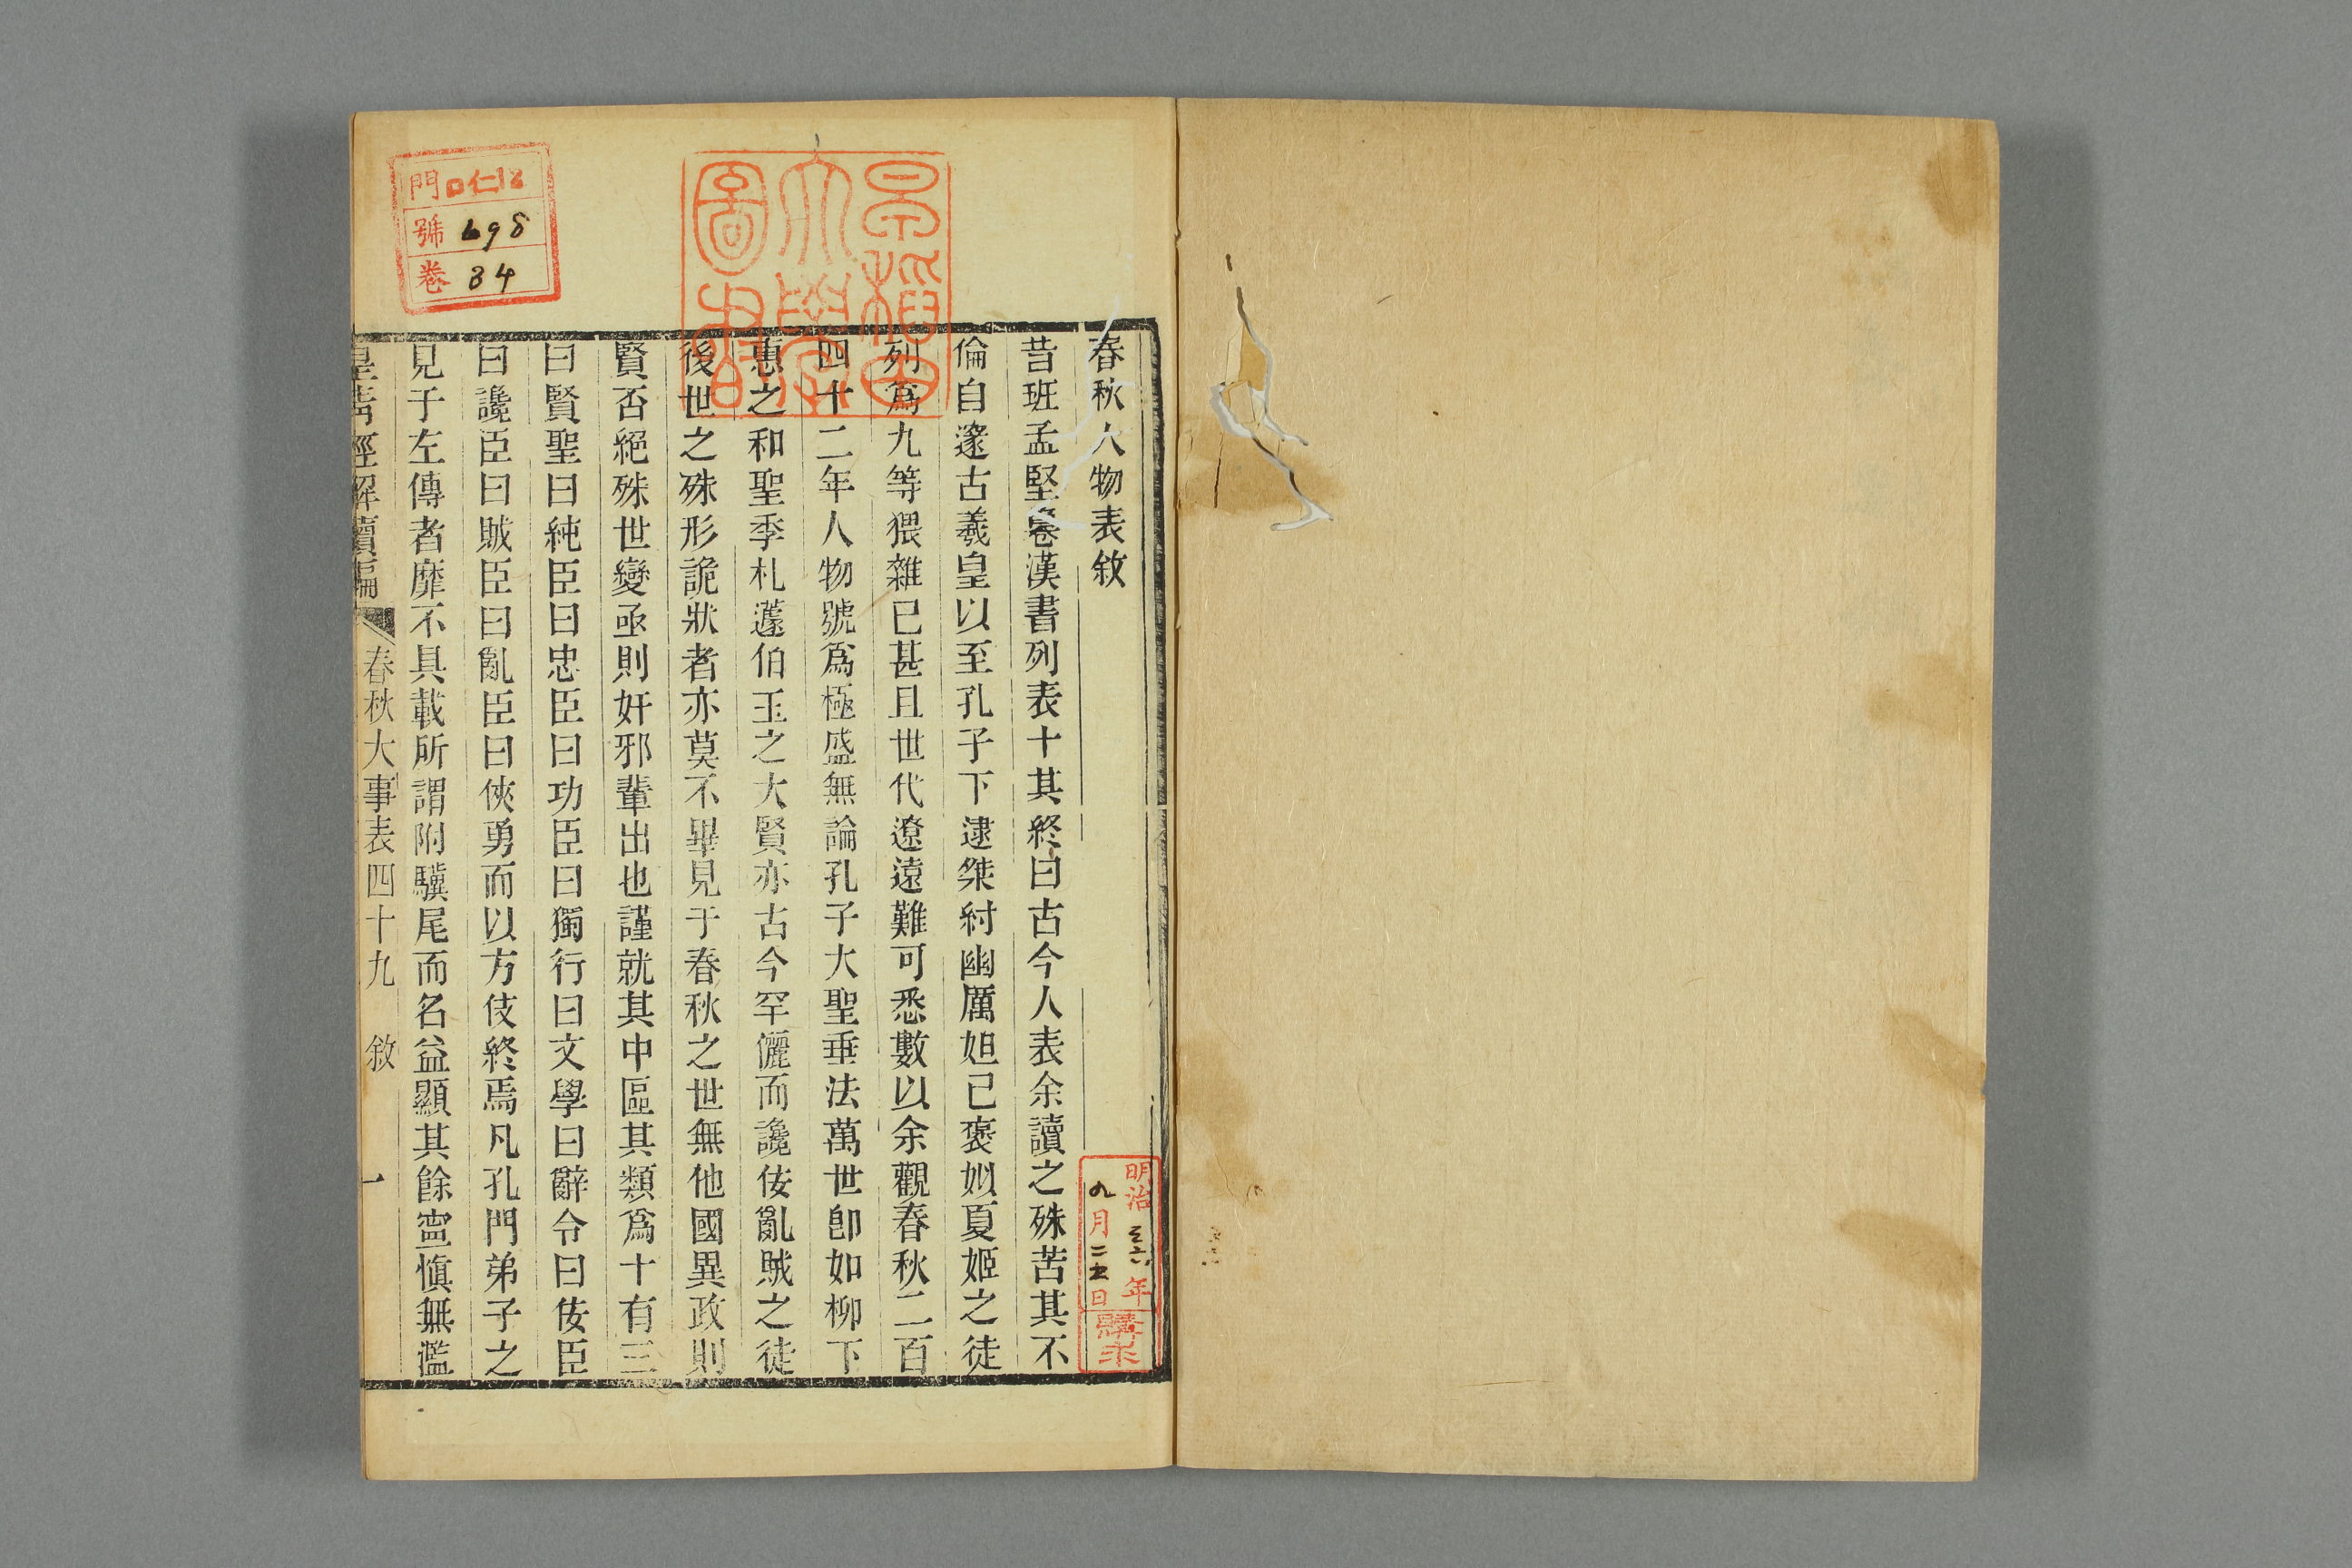 春秋人物表敘
昔班孟堅纂漢書列表十其終曰古今人表余讀之殊苦其不
倫自邃古羲皇以至孔子下逮桀紂幽厲妲己褒姒夏姬之徒
列爲九等猥雜已甚且世代遼遠難可悉數以余觀春秋二百
四十二年人物號爲極盛無論孔子大聖垂法萬世卽如柳下
惠之和聖季札蘧伯玉之大賢亦古今罕儷而讒佞亂賊之徒
後世之殊形詭狀者亦莫不畢見于春秋之世無他國異政則
賢否絕殊世變亟則奸邪輩出也謹就其中區其類爲十有三
曰賢聖曰純臣曰忠臣曰功臣曰獨行曰文學曰辭令曰佞臣
曰讒臣曰賊臣曰亂臣曰俠勇而以方伎終焉凡孔門弟子之
見于左傳者靡不具載所謂附驥尾而名益顯其餘寧愼無濫
皇淸經解續編
春秋大事表四十九 敘 一
早稻田
大學
圖書
門 口仁12
號 698
卷 34
明治三六年
九月二五日
購求